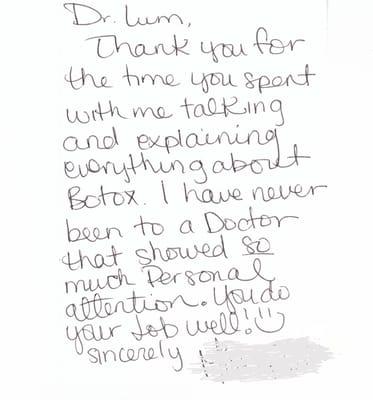 Dr. Lum,
Thank you for
the time you spent
with me talking
and explaining
everything about
Botox. I have never
been to a Doctor
that showed so
much Personal
attention. You do
your Job well! ☺
Sincerely